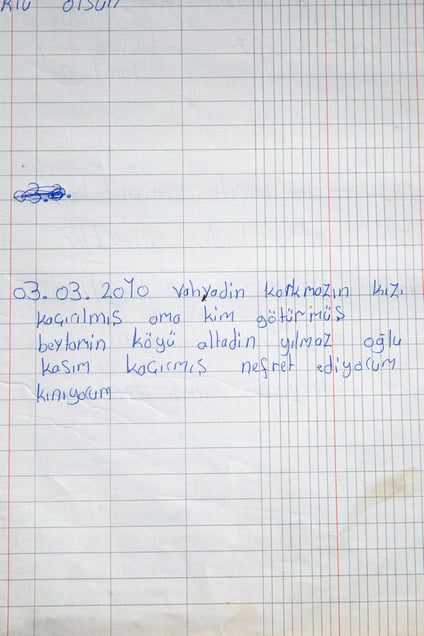 olsun
03. 03. 2010 vahyadin korkmazın kızı
kaçırılmış ama kim götürmüş
beytamin köyü altadin yılmaz oğlu
kasım kaçırmış nefret ediyorum
kınıyorum